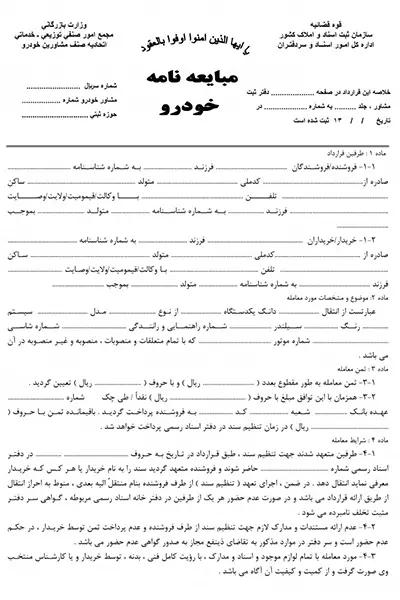 قوه قضائیه
سازمان ثبت اسناد و املاک کشور
اداره کل امور اسناد و سردفتران
یا ایها الذین امنوا اوفوا بالعقود
وزارت بازرگانی
مجمع امور صنفی توزیعی - خدماتی
اتحادیه صنف مشاورین خودرو
مبایعه نامه
خودرو
خلاصه این قرارداد در صفحه .......... دفتر ثبت
مشاور ، جلد ........ به شماره .......... در
تاریخ / / ۱۳ ثبت شده است
شماره سریال ..........
مشاور خودرو شماره ..........
حوزه ثبتی ..........
ماده ۱ : طرفین قرارداد
۱-۱- فروشنده/فروشندگان .......... فرزند .......... به شماره شناسنامه ..........
صادره از .......... کدملی .......... متولد .......... ساکن
.......... تلفن .......... با وکالت/قیمومیت/ولایت/وصایت
.......... فرزند .......... به شماره شناسنامه .......... متولد .......... بموجب
..........
۱-۲- خریدار/خریداران .......... فرزند .......... به شماره شناسنامه ..........
صادره از .......... کدملی .......... متولد .......... ساکن
.......... تلفن .......... با وکالت/قیمومیت/ولایت/وصایت
.......... فرزند .......... به شماره شناسنامه .......... متولد .......... بموجب ..........
ماده ۲: موضوع و مشخصات مورد معامله
عبارتست از انتقال .......... دانگ یکدستگاه .......... از نوع .......... مدل .......... سیستم
.......... رنگ .......... سیلندر .......... شماره راهنمایی و رانندگی .......... شماره شاسی
.......... شماره موتور .......... که با تمام متعلقات و منصوبات ، منصوبه و غیر منصوبه در آن
می باشد .
ماده ۳ : ثمن معامله
۳-۱- ثمن معامله به طور مقطوع بعدد ( .......... ریال ) و با حروف ( .......... ریال ) تعیین گردید .
۳-۲- همزمان با این توافق مبلغ با حروف ( .......... ریال ) نقداً / طی چک .......... شماره ..........
عهده بانک .......... شعبه .......... کد .......... به فروشنده پرداخت گردید . باقیمانده ثمن با حروف (
.......... ریال ) در زمان تنظیم سند در دفتر اسناد رسمی پرداخت خواهد شد .
ماده ۴ : شرایط معامله
۴-۱- طرفین متعهد شدند جهت تنظیم سند ، طبق قرارداد در تاریخ به حروف .......... در دفتر
اسناد رسمی شماره .......... حاضر شوند و فروشنده متعهد گردید سند را به نام خریدار یا هر کس که خریدار
معرفی نماید انتقال دهد . در ضمن ، اجرای تعهد ( تنظیم سند ) از طرف فروشنده بنام منتقل الیه بعدی ، منوط به احراز انتقال
از طریق ارائه قرارداد می باشد و در صورت عدم حضور هر یک از طرفین در دفتر خانه اسناد رسمی مربوطه ، گواهی سر دفتر
مثبت تخلف نامبرده می شود .
۴-۲- عدم ارائه مستندات و مدارک لازم جهت تنظیم سند از طرف فروشنده و عدم پرداخت ثمن توسط خریدار ، در حکم
عدم حضور است و سر دفتر در موارد مذکور به تقاضای ذینفع مجاز به صدور گواهی عدم حضور می باشد .
۴-۳- مورد معامله با تمام لوازم موجود و اسناد و مدارک ، با رؤیت کامل فنی ، بدنه ، توسط خریدار و یا کارشناس منتخب
وی صورت گرفت و از کمیت و کیفیت آن آگاه می باشد .